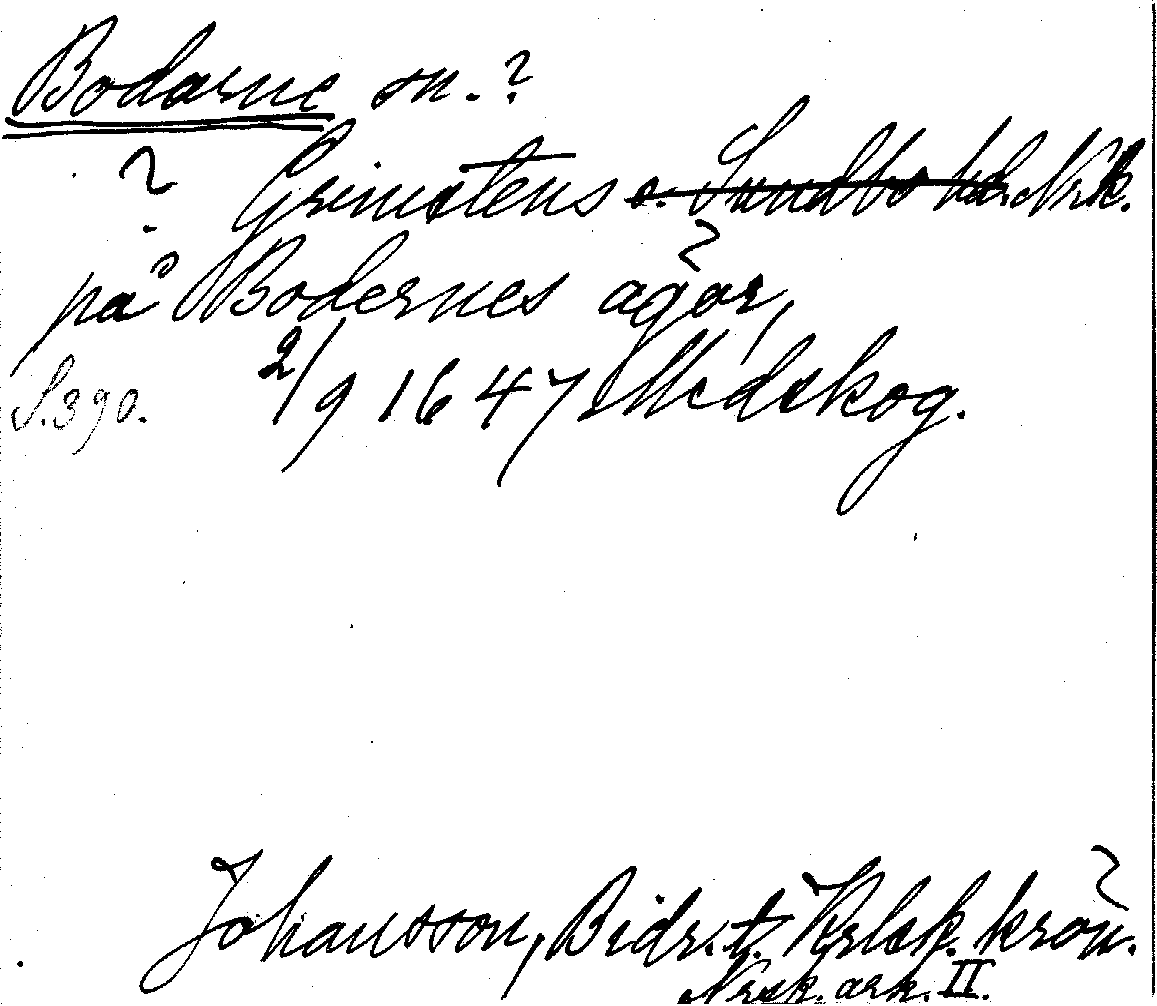 Bodarne sn.?
? Grimstens o. Sundbo hd. Nrk.
på Bodernes ägor,
S. 390. 2/9 1647 Medskog.
Johansson, Bidr. t. Krlsk. krön.
Nrsk. ark. II.